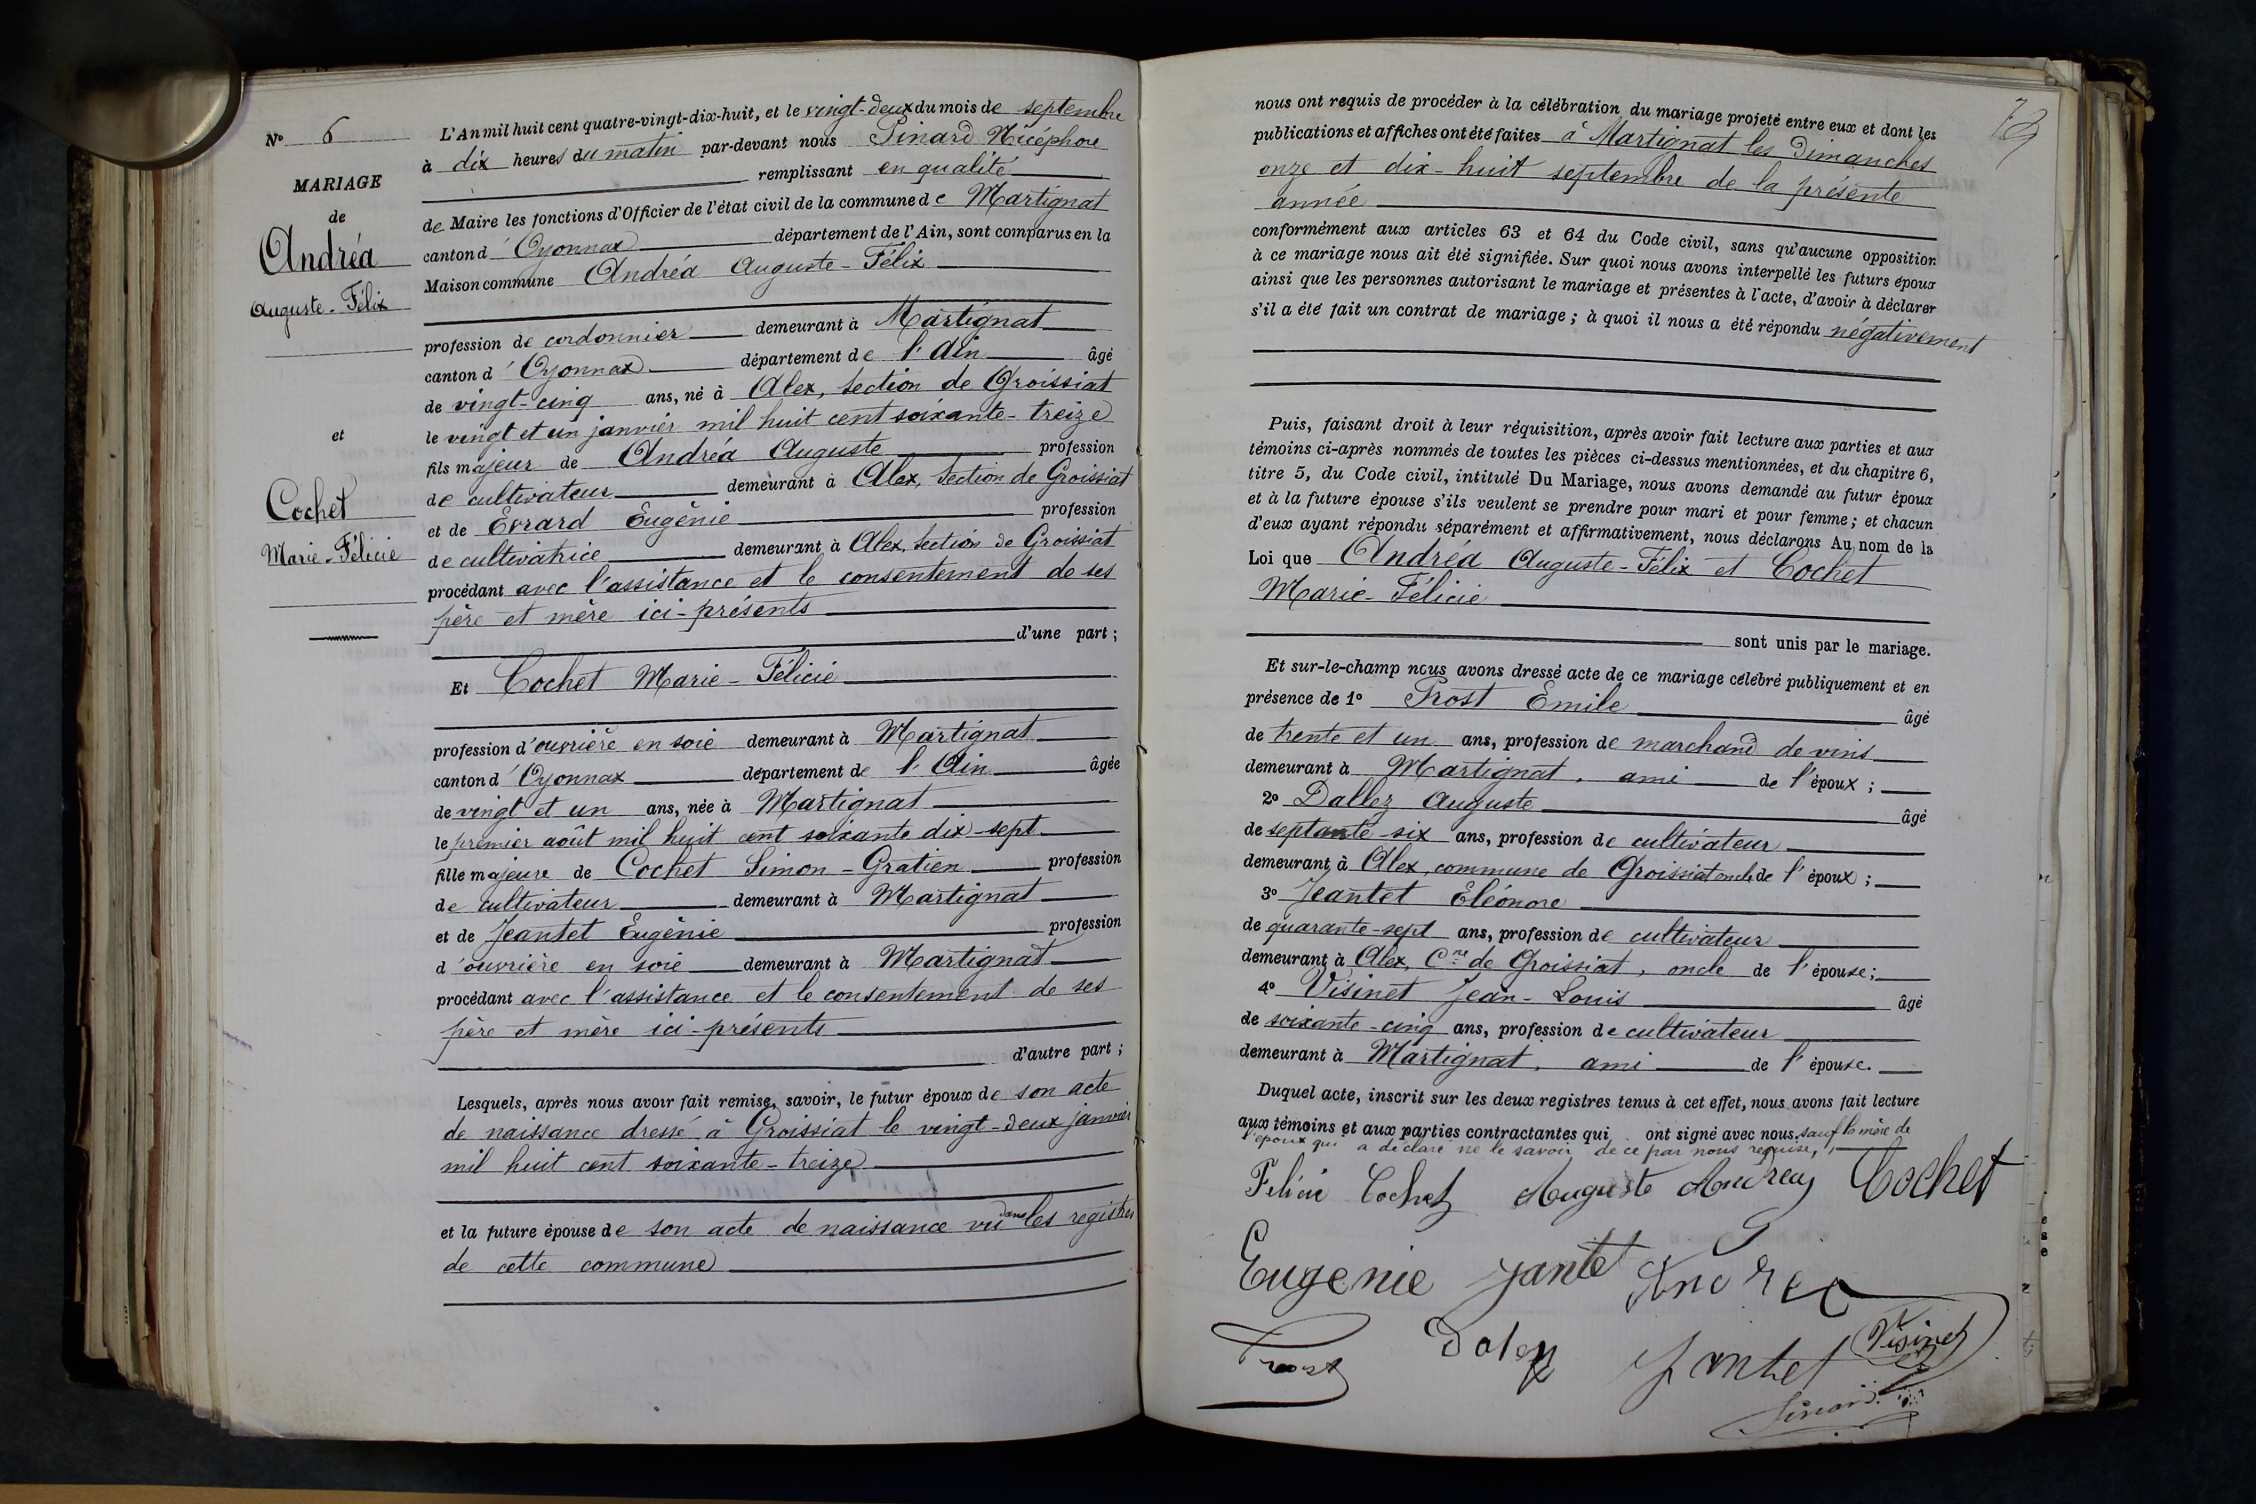 Nº 6
MARIAGE
de
Andréa
Auguste-Félix
et
Cochet
Marie-Félicie
L'An mil huit cent quatre-vingt-dix-huit, et le vingt-deux du mois de septembre
à dix heures du matin par-devant nous Pinard Nicéphore
remplissant en qualité
de Maire les fonctions d'Officier de l'état civil de la commune de Martignat
canton d'Oyonnax département de l'Ain, sont comparus en la
Maison commune Andréa Auguste-Félix
profession de cordonnier demeurant à Martignat
canton d'Oyonnax département de l'Ain âgé
de vingt-cinq ans, né à Alex, section de Groissiat
le vingt et un janvier mil huit cent soixante-treize
fils majeur de Andréa Auguste profession
de cultivateur demeurant à Alex, section de Groissiat
et de Evrard Eugénie profession
de cultivatrice demeurant à Alex, section de Groissiat
procédant avec l'assistance et le consentement de ses
père et mère ici-présents
d'une part ;
Et Cochet Marie-Félicie
profession d'ouvrière en soie demeurant à Martignat
canton d'Oyonnax département de l'Ain âgée
de vingt et un ans, née à Martignat
le premier août mil huit cent soixante dix-sept
fille majeure de Cochet Simon-Gratien profession
de cultivateur demeurant à Martignat
et de Jeantet Eugénie profession
d'ouvrière en soie demeurant à Martignat
procédant avec l'assistance et le consentement de ses
père et mère ici-présents
d'autre part ;
Lesquels, après nous avoir fait remise, savoir, le futur époux de son acte
de naissance dressé à Groissiat le vingt-deux janvier
mil huit cent soixante-treize
et la future épouse de son acte de naissance vu dans les registres
de cette commune
nous ont requis de procéder à la célébration du mariage projeté entre eux et dont les
publications et affiches ont été faites à Martignat les Dimanches
onze et dix-huit septembre de la présente
année
conformément aux articles 63 et 64 du Code civil, sans qu'aucune opposition
à ce mariage nous ait été signifiée. Sur quoi nous avons interpellé les futurs époux
ainsi que les personnes autorisant le mariage et présentes à l'acte, d'avoir à déclarer
s'il a été fait un contrat de mariage ; à quoi il nous a été répondu négativement
Puis, faisant droit à leur réquisition, après avoir fait lecture aux parties et aux
témoins ci-après nommés de toutes les pièces ci-dessus mentionnées, et du chapitre 6,
titre 5, du Code civil, intitulé Du Mariage, nous avons demandé au futur époux
et à la future épouse s'ils veulent se prendre pour mari et pour femme ; et chacun
d'eux ayant répondu séparément et affirmativement, nous déclarons Au nom de la
Loi que Andréa Auguste-Félix et Cochet
Marie-Félicie
sont unis par le mariage.
Et sur-le-champ nous avons dressé acte de ce mariage célébré publiquement et en
présence de 1º Prost Emile âgé
de trente et un ans, profession de marchand de vins
demeurant à Martignat, ami de l'époux ;
2º Dallez Auguste âgé
de septante-six ans, profession de cultivateur
demeurant à Alex, commune de Groissiat oncle de l'époux ;
3º Jeantet Eléonore
de quarante-sept ans, profession de cultivateur
demeurant à Alex, Cne de Groissiat, oncle de l'épouse ;
4º Visinet Jean-Louis âgé
de soixante-cinq ans, profession de cultivateur
demeurant à Martignat, ami de l'épouse.
Duquel acte, inscrit sur les deux registres tenus à cet effet, nous avons fait lecture
aux témoins et aux parties contractantes qui ont signé avec nous, sauf la mère de
l'époux qui a déclaré ne le savoir de ce par nous requise,
Felicie Cochet Auguste Andrea Cochet
Eugenie Jantet Andrea
Prost Dalez Jantet Visinet
Pinard